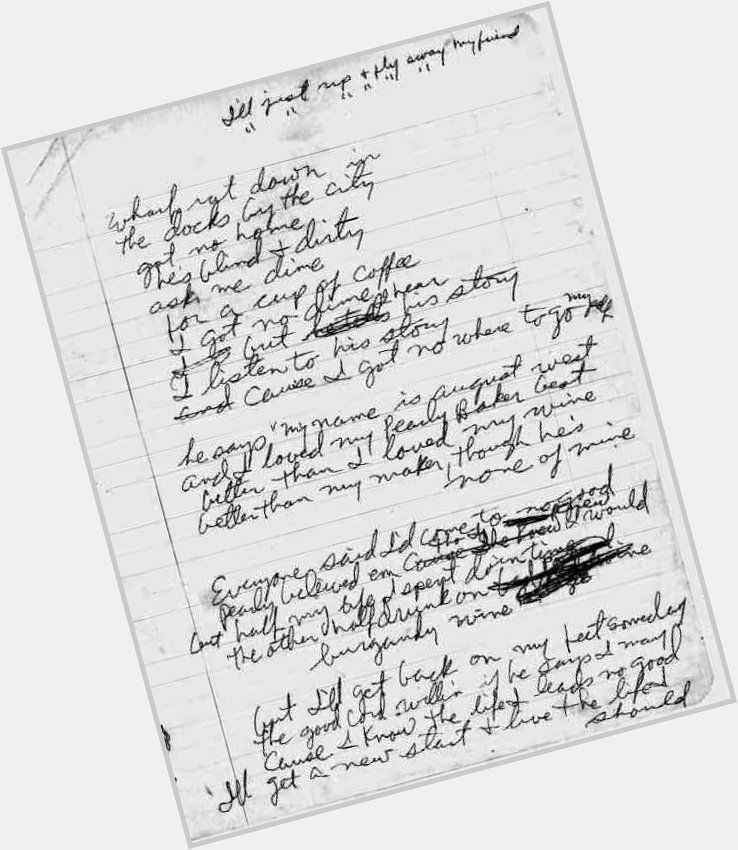 I'll just up + fly away my friend
" " " " " "
wharf rat down in
the docks by the city
got no home
he's blind + dirty
ask me dime
for a cup of coffee
I got no dime
I but hear his story
I listen to his story
and Cause I got no where to go myself
he says "my name is august west
and I loved my Pearly Baker best
better than I loved my wine
better than my maker, though he's
none of mine
Everyone said I'd come to no good
Pearly believed em I knew I would
but half my life I spent doin time
the other half drunk on
burgundy wine
but I'll get back on my feet someday
the good Lord willin if he says I may
Cause I know the life I leads no good
I'll get a new start + live the life I
should